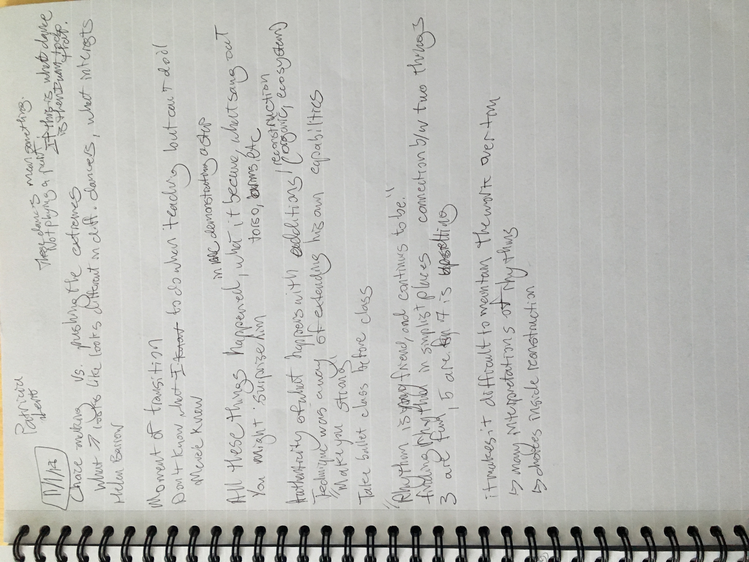 Patricia
These dances mean something.
Not playing a part
If this is what dance
is then I want
Choice making vs. pushing the extremes
What → looks like looks different in diff. dancers, what interests
Helen Barrow
Moment of transition
Don't know what I to do when teaching but can't do it
Merce Knew
in demonstrating a step
All these things happened, what it became, what sang out
You might surprise him torso, arms, etc
Authenticity of what happens with additions/reconstruction
(organic, ecosystem)
Technique was a way of extending his own capabilities
"Make you strong"
Take ballet class before class
"Rhythm is my friend, and continues to be."
finding rhythm in simplist places connection b/w two things
3 are fun, 5 are 7 is upsetting
it makes it difficult to maintain the work over time
↳ many interpretations of rhythms
↳ choices inside reconstruction